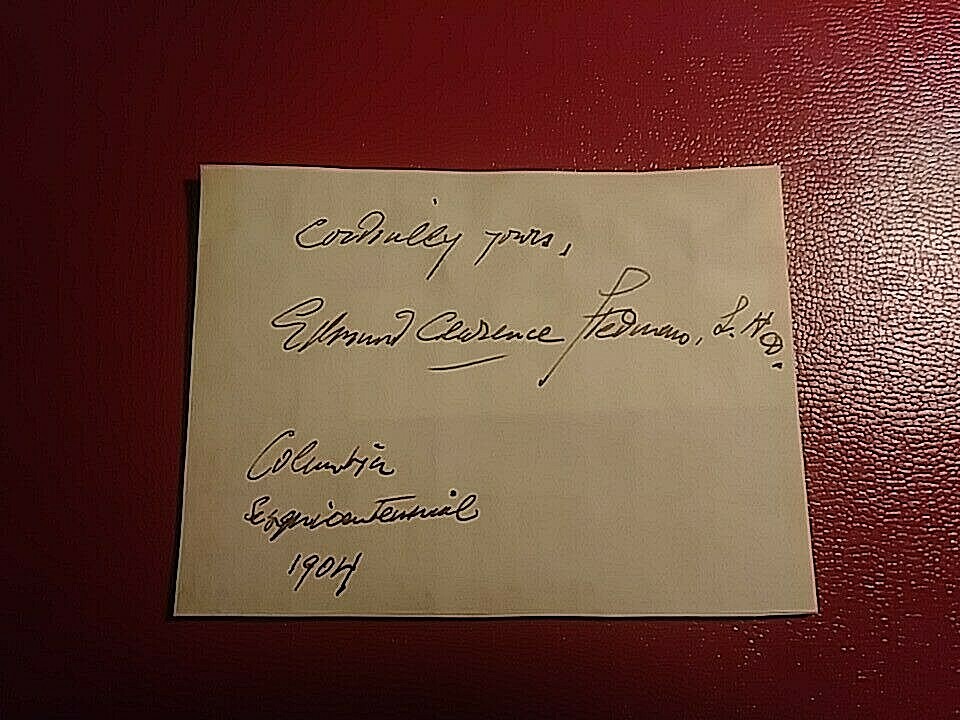 Cordially yours,
Edmund Clarence Stedman, L.H.D.
Columbia
Sesquicentennial
1904